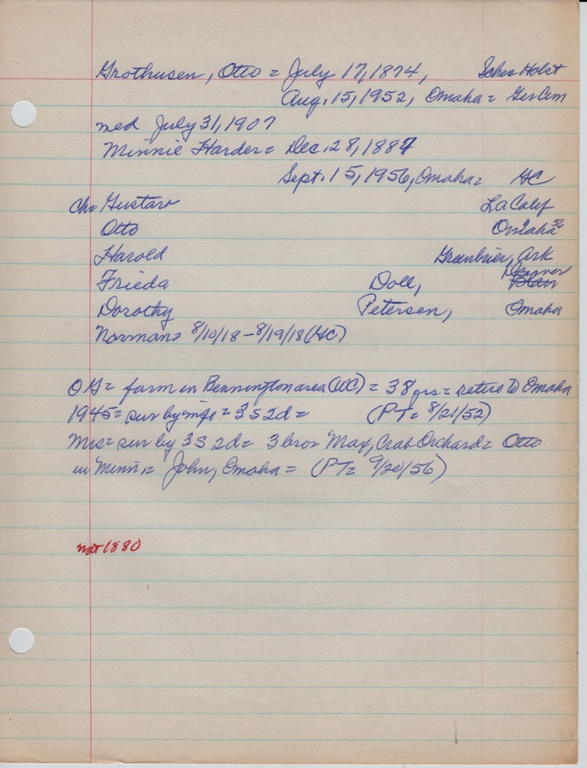 Grothusen, Otto = July 17, 1874, Sches Holst
Aug. 15, 1952, Omaha = Ger Cem
med July 31, 1907
Minnie Harder = Dec. 28, 1887
Sept. 15, 1956, Omaha = HC
Ch = Gustav La Calif
Otto Omaha 56
Harold Greenbrier, Ark
Frieda Doll, Denver Blair
Dorothy Petersen, Omaha
Norman = 8/10/18 - 8/19/18 (HC)
OG = farm in Bennington area (WC) = 38 yrs = retire to Omaha
1945 = sur by wife = 3s 2d = (PT = 8/21/52)
Mrs = sur by 3s 2d = 3 bros Max, Crab Orchard = Otto
in Minn = John, Omaha = (PT = 9/20/56)
not 1880